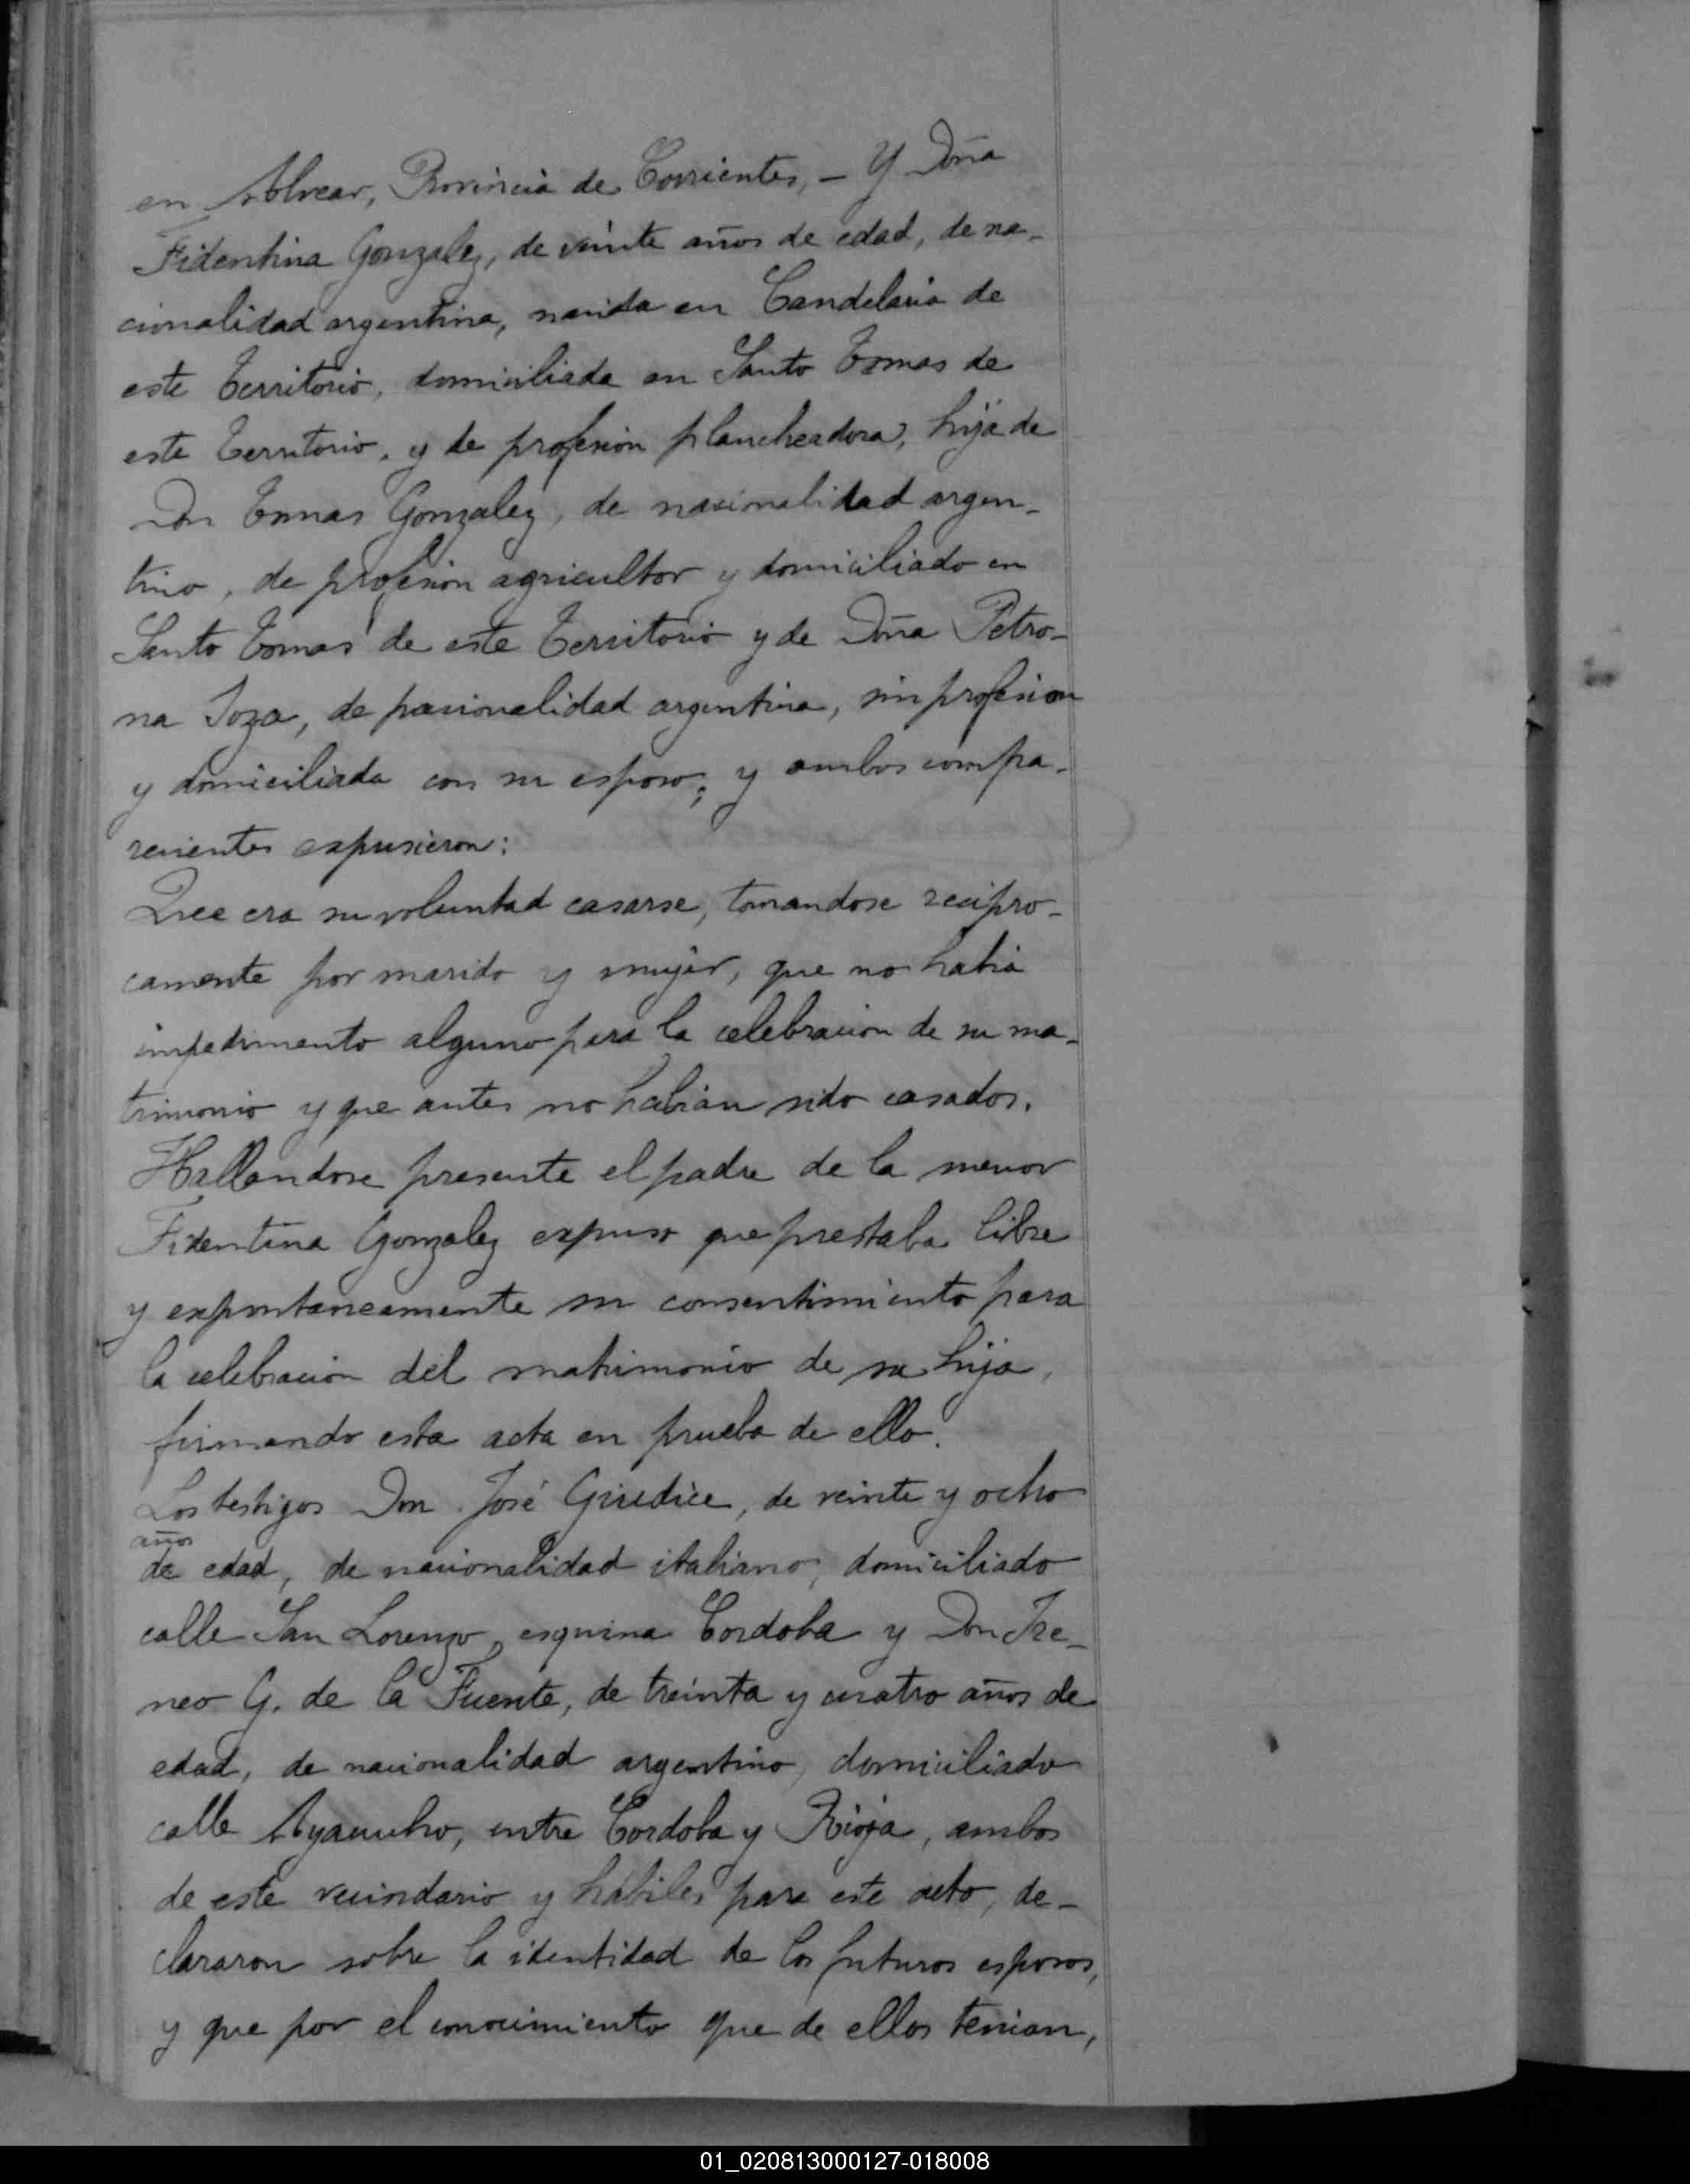 en Alvear, Provincia de Corrientes, - Y Doña
Fidentina Gonzalez, de veinte años de edad, de na-
cionalidad argentina, nacida en Candelaria de
este Territorio, domiciliada en Santo Tomas de
este Territorio, y de profesion plancheadora, hija de
Don Tomas Gonzalez, de nacionalidad argen-
tino, de profesion agricultor y domiciliado en
Santo Tomas de este Territorio y de Doña Petro-
na Soza, de nacionalidad argentina, sin profesion
y domiciliada con su esposo; y ambos compa-
recientes expusieron:
Que era su voluntad casarse, tomandose recipro-
camente por marido y mujer, que no habia
impedimento alguno para la celebracion de su ma-
trimonio y que antes no habian sido casados.
Hallandose presente el padre de la menor
Fidentina Gonzalez expuso que prestaba libre
y expontaneamente su consentimiento para
la celebracion del matrimonio de su hija,
firmando esta acta en prueba de ello.
Los testigos Don José Giudice, de veinte y ocho
años
de edad, de nacionalidad italiano, domiciliado
calle San Lorenzo, esquina Cordoba y Don Ire-
neo G. de la Fuente, de treinta y cuatro años de
edad, de nacionalidad argentino, domiciliado
calle Ayacucho, entre Cordoba y Rioja, ambos
de este vecindario y hábiles para este acto, de-
clararon sobre la identidad de los futuros esposos,
y que por el conocimiento que de ellos tenian,
01_020813000127-018008